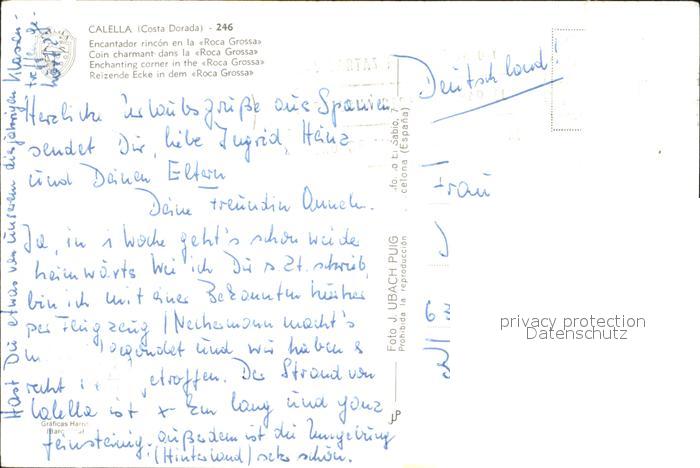 CALELLA (Costa Dorada) - 246
Encantador rincón en la «Roca Grossa»
Coin charmant dans la «Roca Grossa»
Enchanting corner in the «Roca Grossa»
Reizende Ecke in dem «Roca Grossa»
Herzliche Urlaubsgrüße aus Spanien
sendet Dir, liebe Ingrid, Heinz
und Deinen Eltern
Deine Freundin Anneh.
Ja, in 1 Woche geht's schon wieder
heimwärts. Wie ich Dir s. Zt. schrieb,
bin ich mit einer Bekannten hierher
per Flugzeug (Neckermann macht's
und wir haben s
recht getroffen. Der Strand von
Calella ist x km lang und ganz
feinsteinig, außerdem ist die Umgebung
(Hinterland) sehr schön.
Hast Du etwas von unserem diesjährigen Klassen-
treffen ge-
hört?
Deutschland!
Frau
6
Foto J. UBACH PUIG
Prohibida la reproducción
celona (España)
Gráficas
privacy protection
Datenschutz